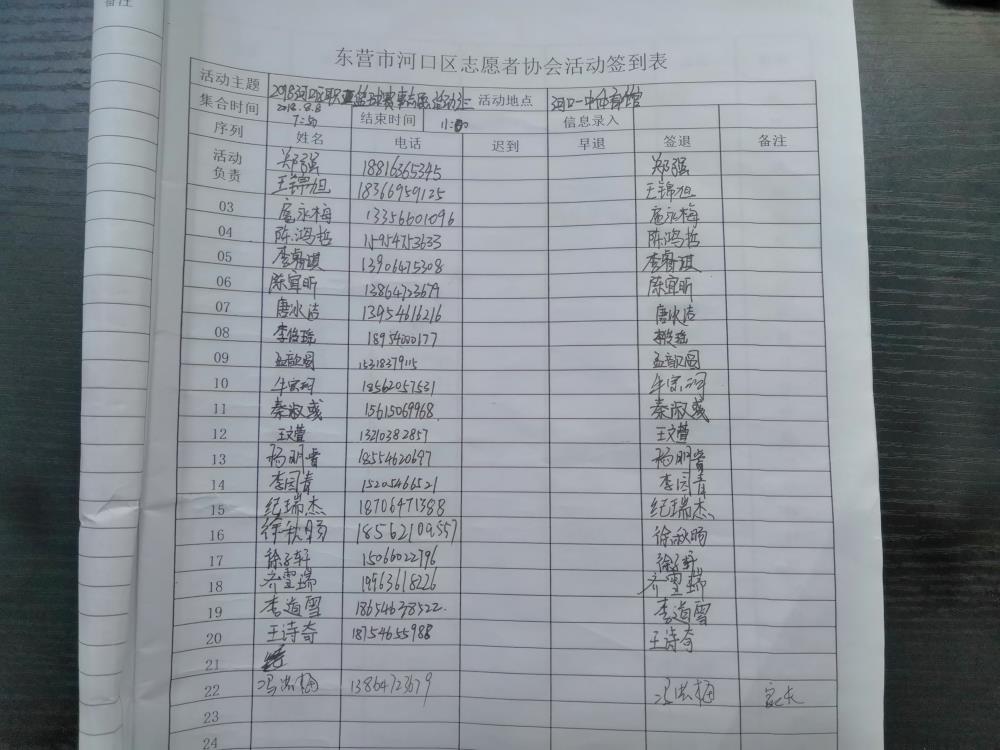 备注
东营市河口区志愿者协会活动签到表
活动主题 2018河口区职工篮球赛事志愿活动 活动地点 河口一中体育馆
集合时间 2018.8.8 7:50 结束时间 11:00 信息录入
序列 姓名 电话 迟到 早退 签退 备注
活动负责 郑强 18816365345 郑强
王锦旭 18366959125 王锦旭
03 扈永梅 13356601096 扈永梅
04 陈鸿哲 15954753633 陈鸿哲
05 李睿琪 13906475308 李睿琪
06 陈宜昕 13864723679 陈宜昕
07 唐冰洁 13954616216 唐冰洁
08 李俊瑶 18954600177
09 孟歆圆 15318379115 孟歆圆
10 牛家珂 18562057531 牛家珂
11 秦淑彧 15615069968 秦淑彧
12 王文萱 13210382857 王文萱
13 杨明睿 18554620697 杨明睿
14 李园青 15205466521 李园青
15 纪瑞杰 18706471388 纪瑞杰
16 徐秋旸 18562109557 徐秋旸
17 徐子轩 15066022796 徐子轩
18 齐雪瑞 19963618226 齐雪瑞
19 李道雪 18654638522 李道雪
20 王诗奇 18754655988 王诗奇
21
22 冯洪梅 13864723679 冯洪梅 家长
23
24